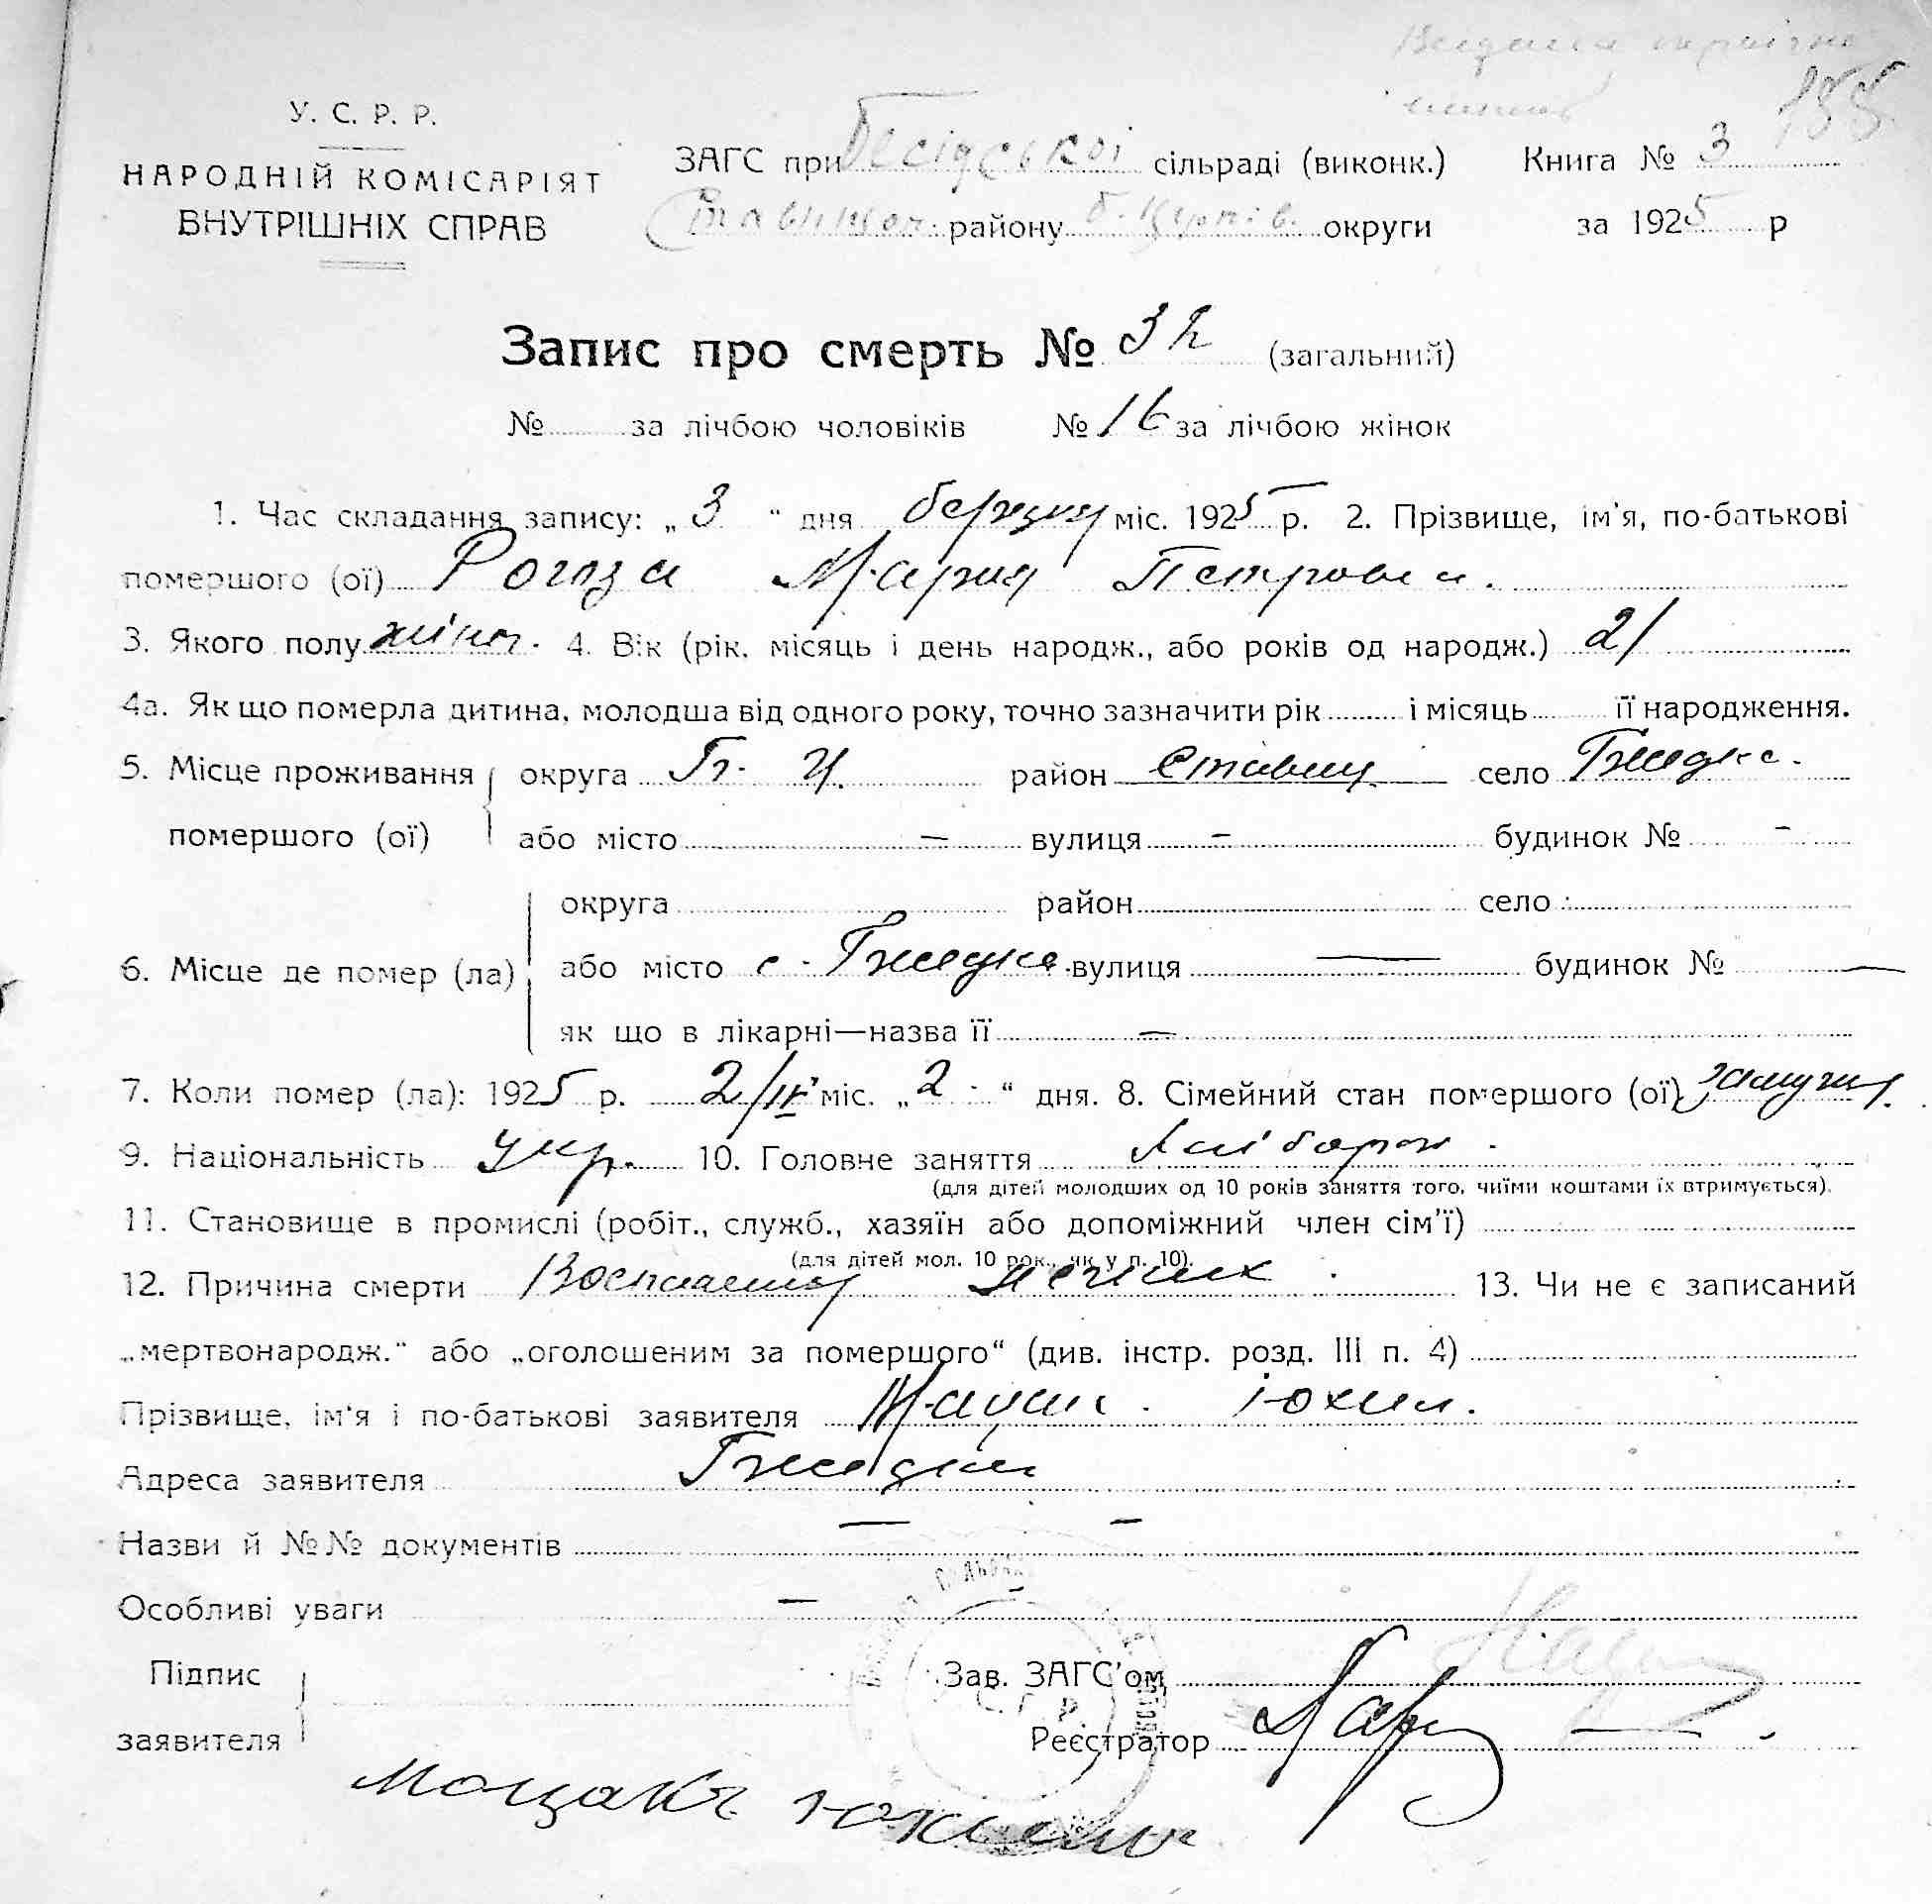 У. С. Р. Р.
НАРОДНІЙ КОМІСАРІЯТ
ВНУТРІШНІХ СПРАВ
ЗАГС при Бесідської сільраді (виконк.) Книга № 3
Ставищан. району Б. Церків. округи за 1925 р
Запис про смерть № 32 (загальний)
№ за лічбою чоловіків № 16 за лічбою жінок
1. Час складання запису: „ 3 “ дня березня міс. 1925 р. 2. Прізвище, ім'я, по-батькові
помершого (ої) Рогоза Мария Петровна.
3. Якого полу жіноч. 4. Вік (рік, місяць і день народж., або років од народж.) 21
4а. Як що померла дитина, молодша від одного року, точно зазначити рік і місяць її народження.
5. Місце проживання округа Б. Ц. район Ставищ. село Бесідка.
помершого (ої) або місто — вулиця - будинок № -
округа район село
6. Місце де помер (ла) або місто с. Бесідка. вулиця — будинок № —
як що в лікарні—назва її —
7. Коли помер (ла): 1925 р. 2/ міс. „ 2 “ дня. 8. Сімейний стан помершого (ої) замужн.
9. Національність укр. 10. Головне заняття хлібороб.
(для дітей молодших од 10 років заняття того, чиїми коштами їх втримується).
11. Становище в промислі (робіт., служб., хазяїн або допоміжний член сім'ї)
(для дітей мол. 10 рок., як у п. 10).
12. Причина смерти Воспаление легких. 13. Чи не є записаний
„мертвонародж.“ або „оголошеним за помершого“ (див. інстр. розд. III п. 4)
Прізвище, ім'я і по-батькові заявителя Мацак. Юхим.
Адреса заявителя Бесідка
Назви й №№ документів — —
Особливі уваги — -
Підпис Зав. ЗАГС'ом
заявителя Реєстратор
Моцакъ Юхим